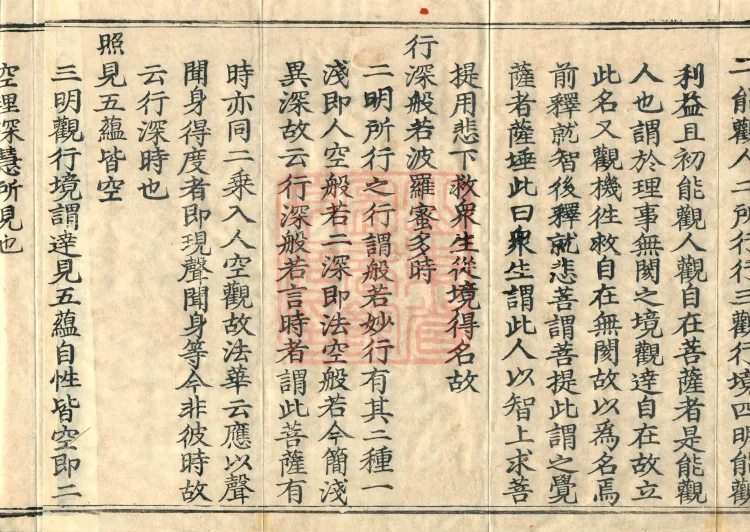 二能觀人二所行行三觀行境四明能觀
利益且初能觀人觀自在菩薩者是能觀
人也謂於理事無閡之境觀達自在故立
此名又觀機徃救自在無閡故以為名焉
前釋就智後釋就悲菩謂菩提此謂之覺
薩者薩埵此曰衆生謂此人以智上求菩
提用悲下救衆生從境得名故
行深般若波羅蜜多時
二明所行之行謂般若妙行有其二種一
淺即人空般若二深即法空般若今簡淺
異深故云行深般若言時者謂此菩薩有
時亦同二乘入人空觀故法華云應以聲
聞身得度者即現聲聞身等今非彼時故
云行深時也
照見五蘊皆空
三明觀行境謂達見五蘊自性皆空即二
空理深慧所見也